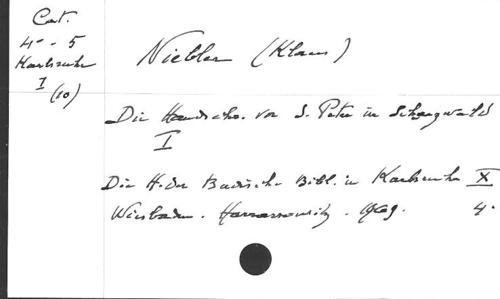 Cat.
4° - 5
Karlsruhe
I
(10)
Niebler (Klaus)
Die Handschr. von S. Peter im Schwarzwald
I
Die H. der Badische Bibl. in Karlsruhe X
Wiesbaden. Harrassowitz. 1969. 4°